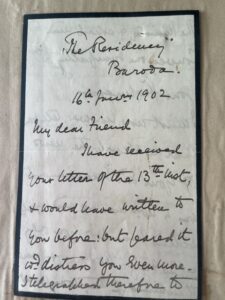 "The Residency"
Baroda.
16th Jany 1902
My dear Friend
I have received
your letter of the 13th inst,
& would have written to
you before: but feared it
wd distress you even more.
I telegraphed therefore to